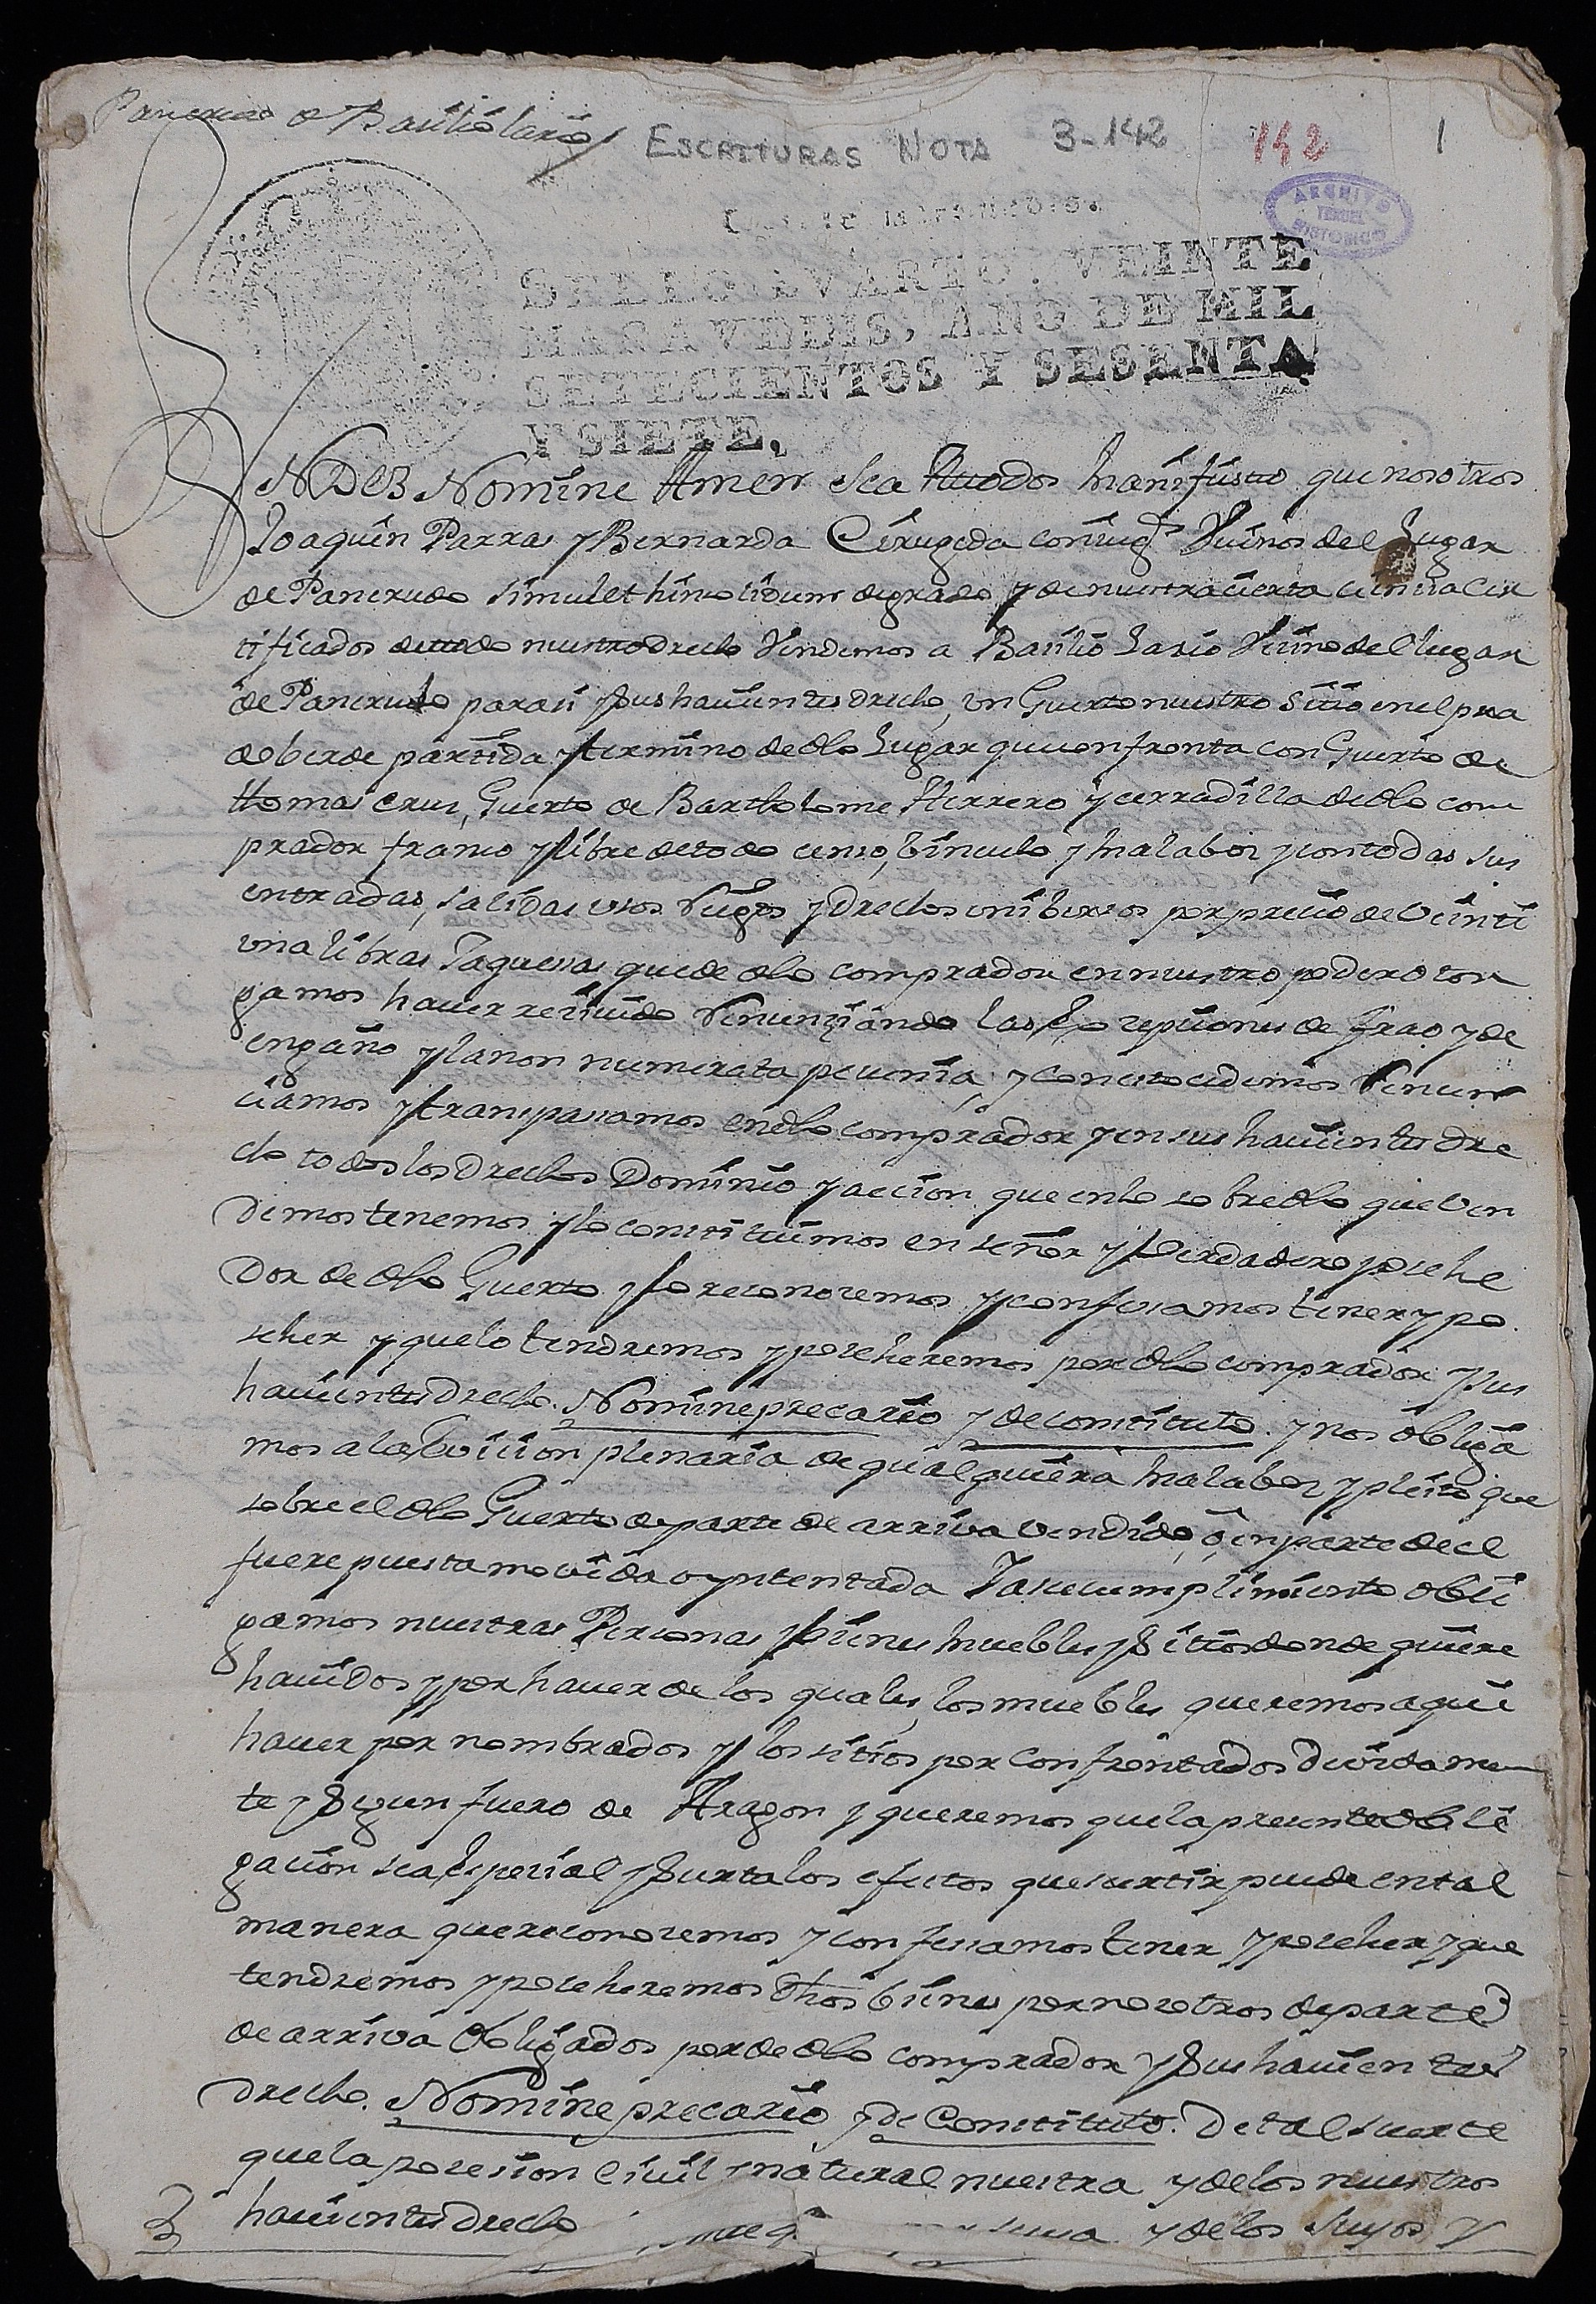 Pancrudo de Basilio Lario
ESCRITURAS NOTA 3-142 142 1
ARCHIVO
TERUEL
HISTORICO
SELLO QVARTO, VEINTE
MARAVEDIS, AÑO DE MIL
SETECIENTOS Y SESENTA
Y SIETE.
N Dei Nomine Amen sea a todos manifiesto que nosotros
Joaquin Parra y Bernarda Cirugeda coniug.s Vecinos del Lugar
de Pancrudo simul et in solidum de grado y de nuestra cierta ciencia Cer
tificados de todo nuestro drecho Vendemos a Basilio Lario Vecino del Lugar
de Pancrudo para si y sus havientes drecho, un Guerto nuestro sitio en el pra
do berde partida y termino de dho Lugar que confronta con Guerto de
thomas Cruz, Guerto de Bartholome Herrero y cerradilla de dho com
prador franco y libre de todo censo, binculo y mala boz y con todas sus
entradas, salidas usos Fuegos y Drechos unibersos por precio de veinti
una libras Jaquesas que de dho comprador en nuestro poder otor
gamos haver recivido Renunziando las Excepciones de frao y de
engaño y la non numerata pecunia, y con esto cedemos Renun
ciamos y transpasamos en dho comprador y en sus havientes dre
cho todos los Drechos Dominio y accion que en lo sobredho que ven
demos tenemos y lo constituimos en señor y Verdadero posehe
dor de dho Guerto y lo reconozemos y confesamos tener y po
seher y que lo tendremos y poseheremos por dho comprador y sus
havientes drecho. Nomine precario y de constituto. y nos obliga
mos a la Eviccion plenaria de qualquiera mala boz y pleito que
sobre el dho Guerto de parte de arriva vendido, o en parte de el
fuere puesta movida o yntentada Ya su cumplimiento obli
gamos nuestras Personas y bienes muebles y sitios donde quiere
havidos y por haver de los quales, los muebles queremos aqui
haver por nombrados y los sitios por confrontados devidamen
te y segun fuero de Aragon y queremos que la presente obli
gacion sea Especial y Surta los efectos que surtir puede en tal
manera que reconozemos y confesamos tener y poseher y que
tendremos y poseheremos dhos bienes por nosotros de parte
de arriva obligados por de dho comprador y sus havientes
drecho. Nomine precario y de Constituto. De tal suerte
que la posesion civil y natural nuestra y de los nuestros
havientes drecho suya y de los suyos y